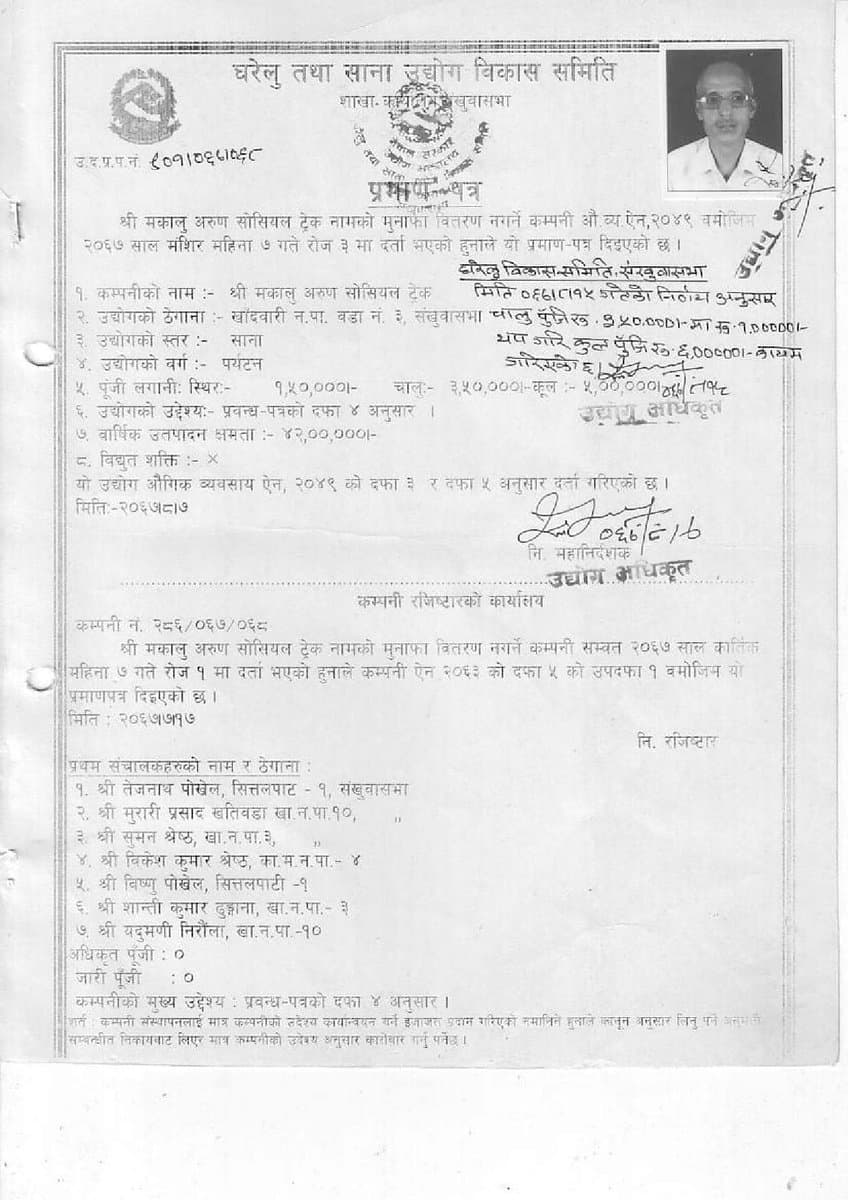 घरेलु तथा साना उद्योग विकास समिति
शाखा कार्यालय संखुवासभा
उ.द.प्र.प.नं. ९०१।०६७।०६८
प्रमाण-पत्र
श्री मकालु अरुण सोसियल ट्रेक नामको मुनाफा वितरण नगर्ने कम्पनी औ.व्य.ऐन,२०४९ बमोजिम
२०६७ साल मंशिर महिना ७ गते रोज ३ मा दर्ता भएको हुनाले यो प्रमाण-पत्र दिइएको छ ।
घरेलु विकास समिति, संखुवासभा
१. कम्पनीको नाम :- श्री मकालु अरुण सोसियल ट्रेक मिति ०६८।८।१५ गतेको निर्णय अनुसार
२. उद्योगको ठेगाना :- खाँदवारी न.पा. वडा नं. ३, संखुवासभा चालु पुँजि रु. ३५००००।- मा रु. १,०००००।-
३. उद्योगको स्तर :- साना थप गरि कुल पुँजि रु. ६,०००००।- कायम
४. उद्योगको वर्ग :- पर्यटन गरिएको छ ।
५. पूंजी लगानीः स्थिरः- १,५०,०००।- चालुः- ३,५०,०००।- कूल :- ५,००,०००।-
६. उद्योगको उद्देश्यः- प्रवन्ध-पत्रको दफा ४ अनुसार ।
उद्योग अधिकृत
७. वार्षिक उतपादन क्षमता :- ४२,००,०००।-
८. विद्युत शक्ति :- ×
यो उद्योग औगिक व्यवसाय ऐन, २०४९ को दफा ३ र दफा ५ अनुसार दर्ता गरिएको छ ।
मितिः-२०६७।८।७
नि. महानिर्देशक
उद्योग अधिकृत
कम्पनी रजिष्टारको कार्यालय
कम्पनी नं. २८६/०६७/०६८
श्री मकालु अरुण सोसियल ट्रेक नामको मुनाफा वितरण नगर्ने कम्पनी सम्वत २०६७ साल कार्तिक
महिना ७ गते रोज १ मा दर्ता भएको हुनाले कम्पनी ऐन २०६३ को दफा ५ को उपदफा १ वमोजिम यो
प्रमाणपत्र दिइएको छ ।
मिति : २०६७।७।१७
नि. रजिष्टार
प्रथम संचालकहरुको नाम र ठेगाना :
१. श्री तेजनाथ पोखेल, सित्तलपाट - १, संखुवासभा
२. श्री मुरारी प्रसाद खतिवडा खा.न.पा.१०, ,,
३. श्री सुमन श्रेष्ठ, खा.न.पा.३, ,,
४. श्री विकेश कुमार श्रेष्ठ, का.म.न.पा.- ४
५. श्री विष्णु पोखेल, सित्तलपाटी -१
६. श्री शान्ती कुमार ढुङ्गाना, खा.न.पा.- ३
७. श्री यदुमणी निरौंला, खा.न.पा.-१०
अधिकृत पूँजी : ०
जारी पूँजी : ०
कम्पनीको मुख्य उद्देश्य : प्रवन्ध-पत्रको दफा ४ अनुसार ।
शर्त : कम्पनी संस्थापनलाई मात्र कम्पनीको उदेश्य कार्यान्वयन गर्ने इजाजत प्रदान गरिएको नमानिने हुनाले कानून अनुसार लिनु पर्ने अनुमती
सम्बन्धीत निकायवाट लिएर मात्र कम्पनीको उदेश्य अनुसार कारोबार गर्नु पर्नेछ ।